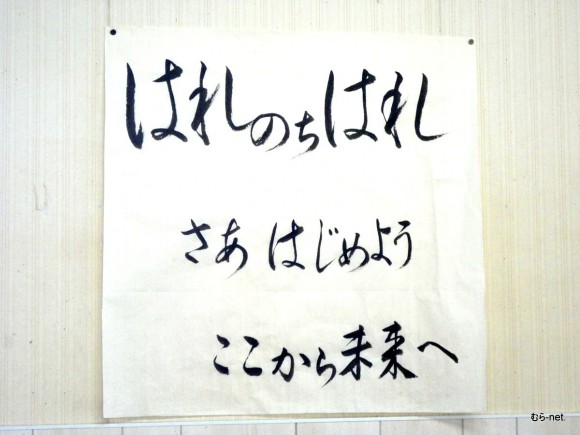 はれのちはれ
さあ はじめよう
ここから未来へ
むら-net.